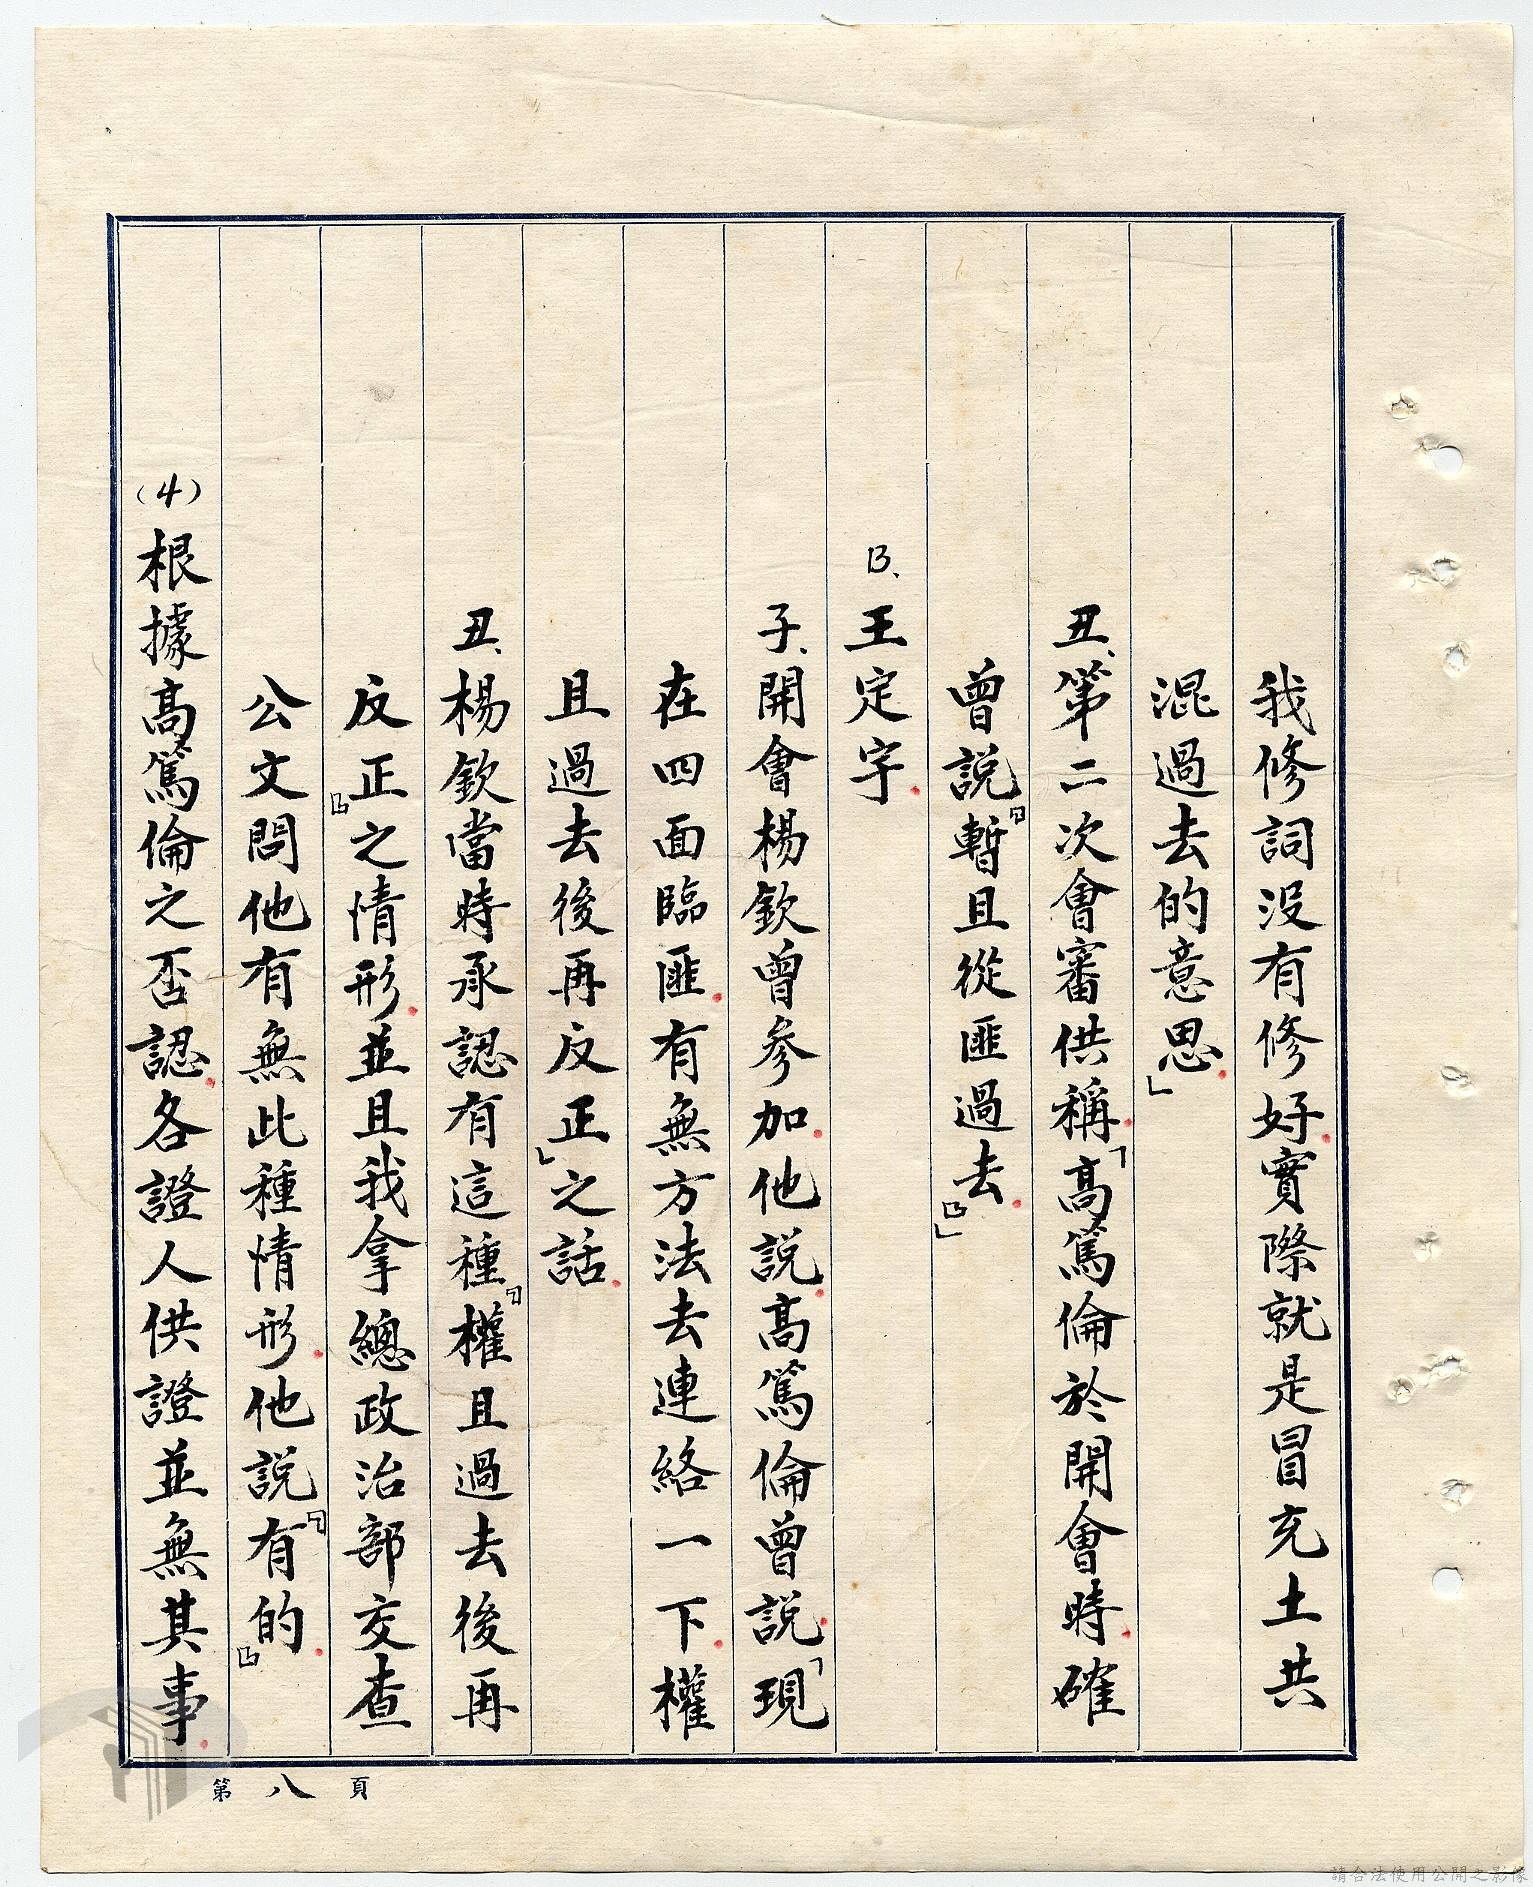 我修詞没有修好。實際就是冒充土共
混過去的意思。」
丑、第二次會審供稱。「高篤倫於開會時。確
曾說『暫且從匪過去。』」
B、王定宇。
子、開會楊欽曾參加。他說。高篤倫曾說。「現
在四面臨匪。有無方法去連絡一下。權
且過去後再反正」之話。
丑、楊欽當時承認有這種『權且過去後再
反正』之情形。並且我拿總政治部交查
公文問他有無此種情形。他說『有的。』
(4)根據高篤倫之否認。各證人供證並無其事。
第八頁
請合法使用公開之影像